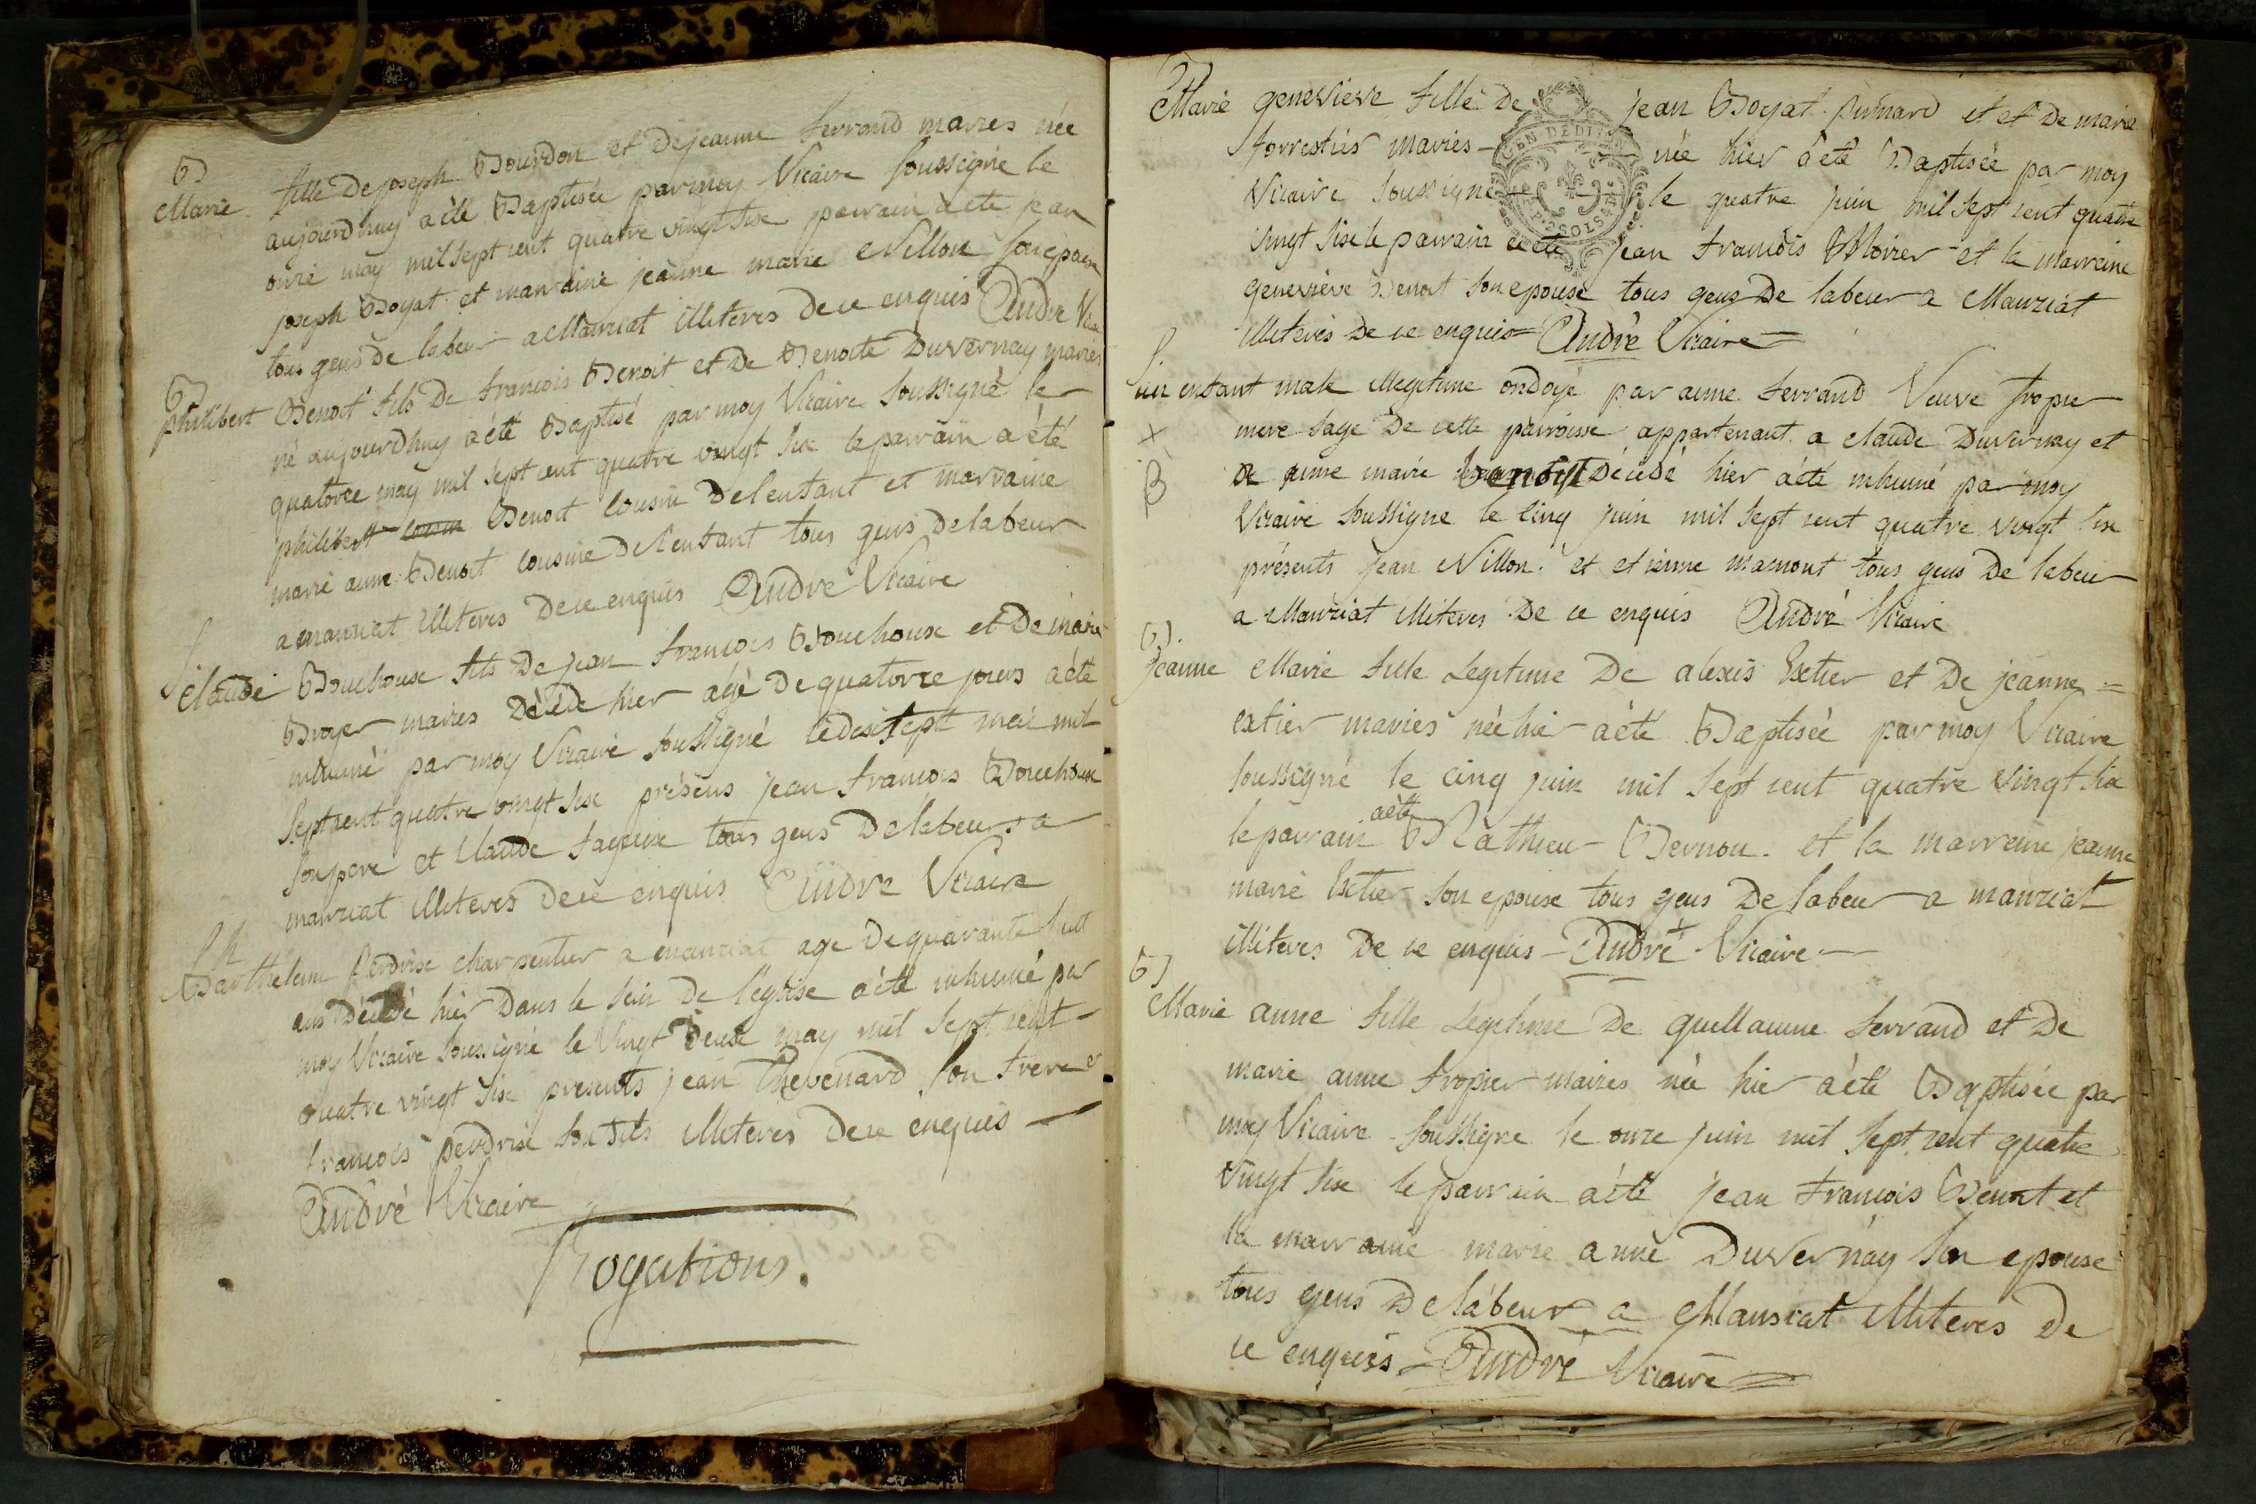 B
Marie fille de joseph Bourdon et de jeanne ferrand mariés née
aujourdhuy a été Baptisée par moy Vicaire soussigné le
onze may mil sept cent quatre vingt six parrain a été jean
joseph Boyat et marraine jeanne marie Nillon son épouse
tous gens de labeur a Manziat illiteres de ce enquis André Vicaire
B
philibert Benoit fils de françois Benoit et de Benoite Duvernay mariés
né aujourdhuy a été Baptisé par moy Vicaire soussigné le
quatorze may mil sept cent quatre vingt six le parrain a été
philibert cousin Benoit cousin de lenfant et marraine
marie anne Benoit cousine de lenfant tous gens de labeur
a manziat illiteres de ce enquis André Vicaire
S
Claude Bouchoux fils de jean françois Bouchoux et de marie
Broyer mariés décédé hier agé de quatorze jours a été
inhumé par moy Vicaire soussigné le dix sept mai mil
sept cent quatre vingt six présens jean françois Bouchoux
son pere et Claude tous gens de labeur a
manziat illiteres de ce enquis André Vicaire
S h
Barthelemi perdrix charpentier a manziat agé de quarante huit
ans décédé hier dans le sein de l'église a été inhumé par
moy Vicaire soussigné le vingt deux may mil sept cent
quatre vingt six présents jean Thevenard son frere et
françois perdrix son fils illiteres de ce enquis
André Vicaire
Rogations.
B
Marie genevieve fille de jean Boyat et et de marie
forrestier mariés née hier a été Baptisée par moy
Vicaire soussigné le quatre juin mil sept cent quatre
vingt six le parrain a été jean françois Moirier et la marraine
genevieve Benoit son epouse tous gens de labeur a Manziat
illiteres de ce enquis André Vicaire
GEN DE DIJON
2 SOLS
S.
un enfant male illegitime ondoyé par anne ferrand Veuve fropier
X
mere sage de cette parroisse appartenant a claude Duvernay et
B
de anne marie benoist décédé hier a été inhumé par moy
Vicaire soussigné le cinq juin mil sept cent quatre vingt six
présents jean Nillon et etienne mamont tous gens de labeur
a Manziat illiteres de ce enquis André Vicaire
B.
jeanne Marie fille legitime de alexis Extier et de jeanne
extier mariés née hier a été Baptisée par moy Vicaire
soussigné le cinq juin mil sept cent quatre vingt six
le parrain a été Mathieu Bernou et la marreine jeanne
marie Extier son epouse tous gens de labeur a manziat
illiteres de ce enquis André Vicaire
B
Marie anne fille legitime de guillaume ferrand et de
marie anne fropier mariés née hier a été Baptisée par
moy Vicaire soussigné le onze juin mil sept cent quatre
vingt six le parrain a été jean françois Benoit et
la marraine marie anne Duvernay son epouse
tous gens de labeur a Mansiat illiteres de
ce enquis André Vicaire